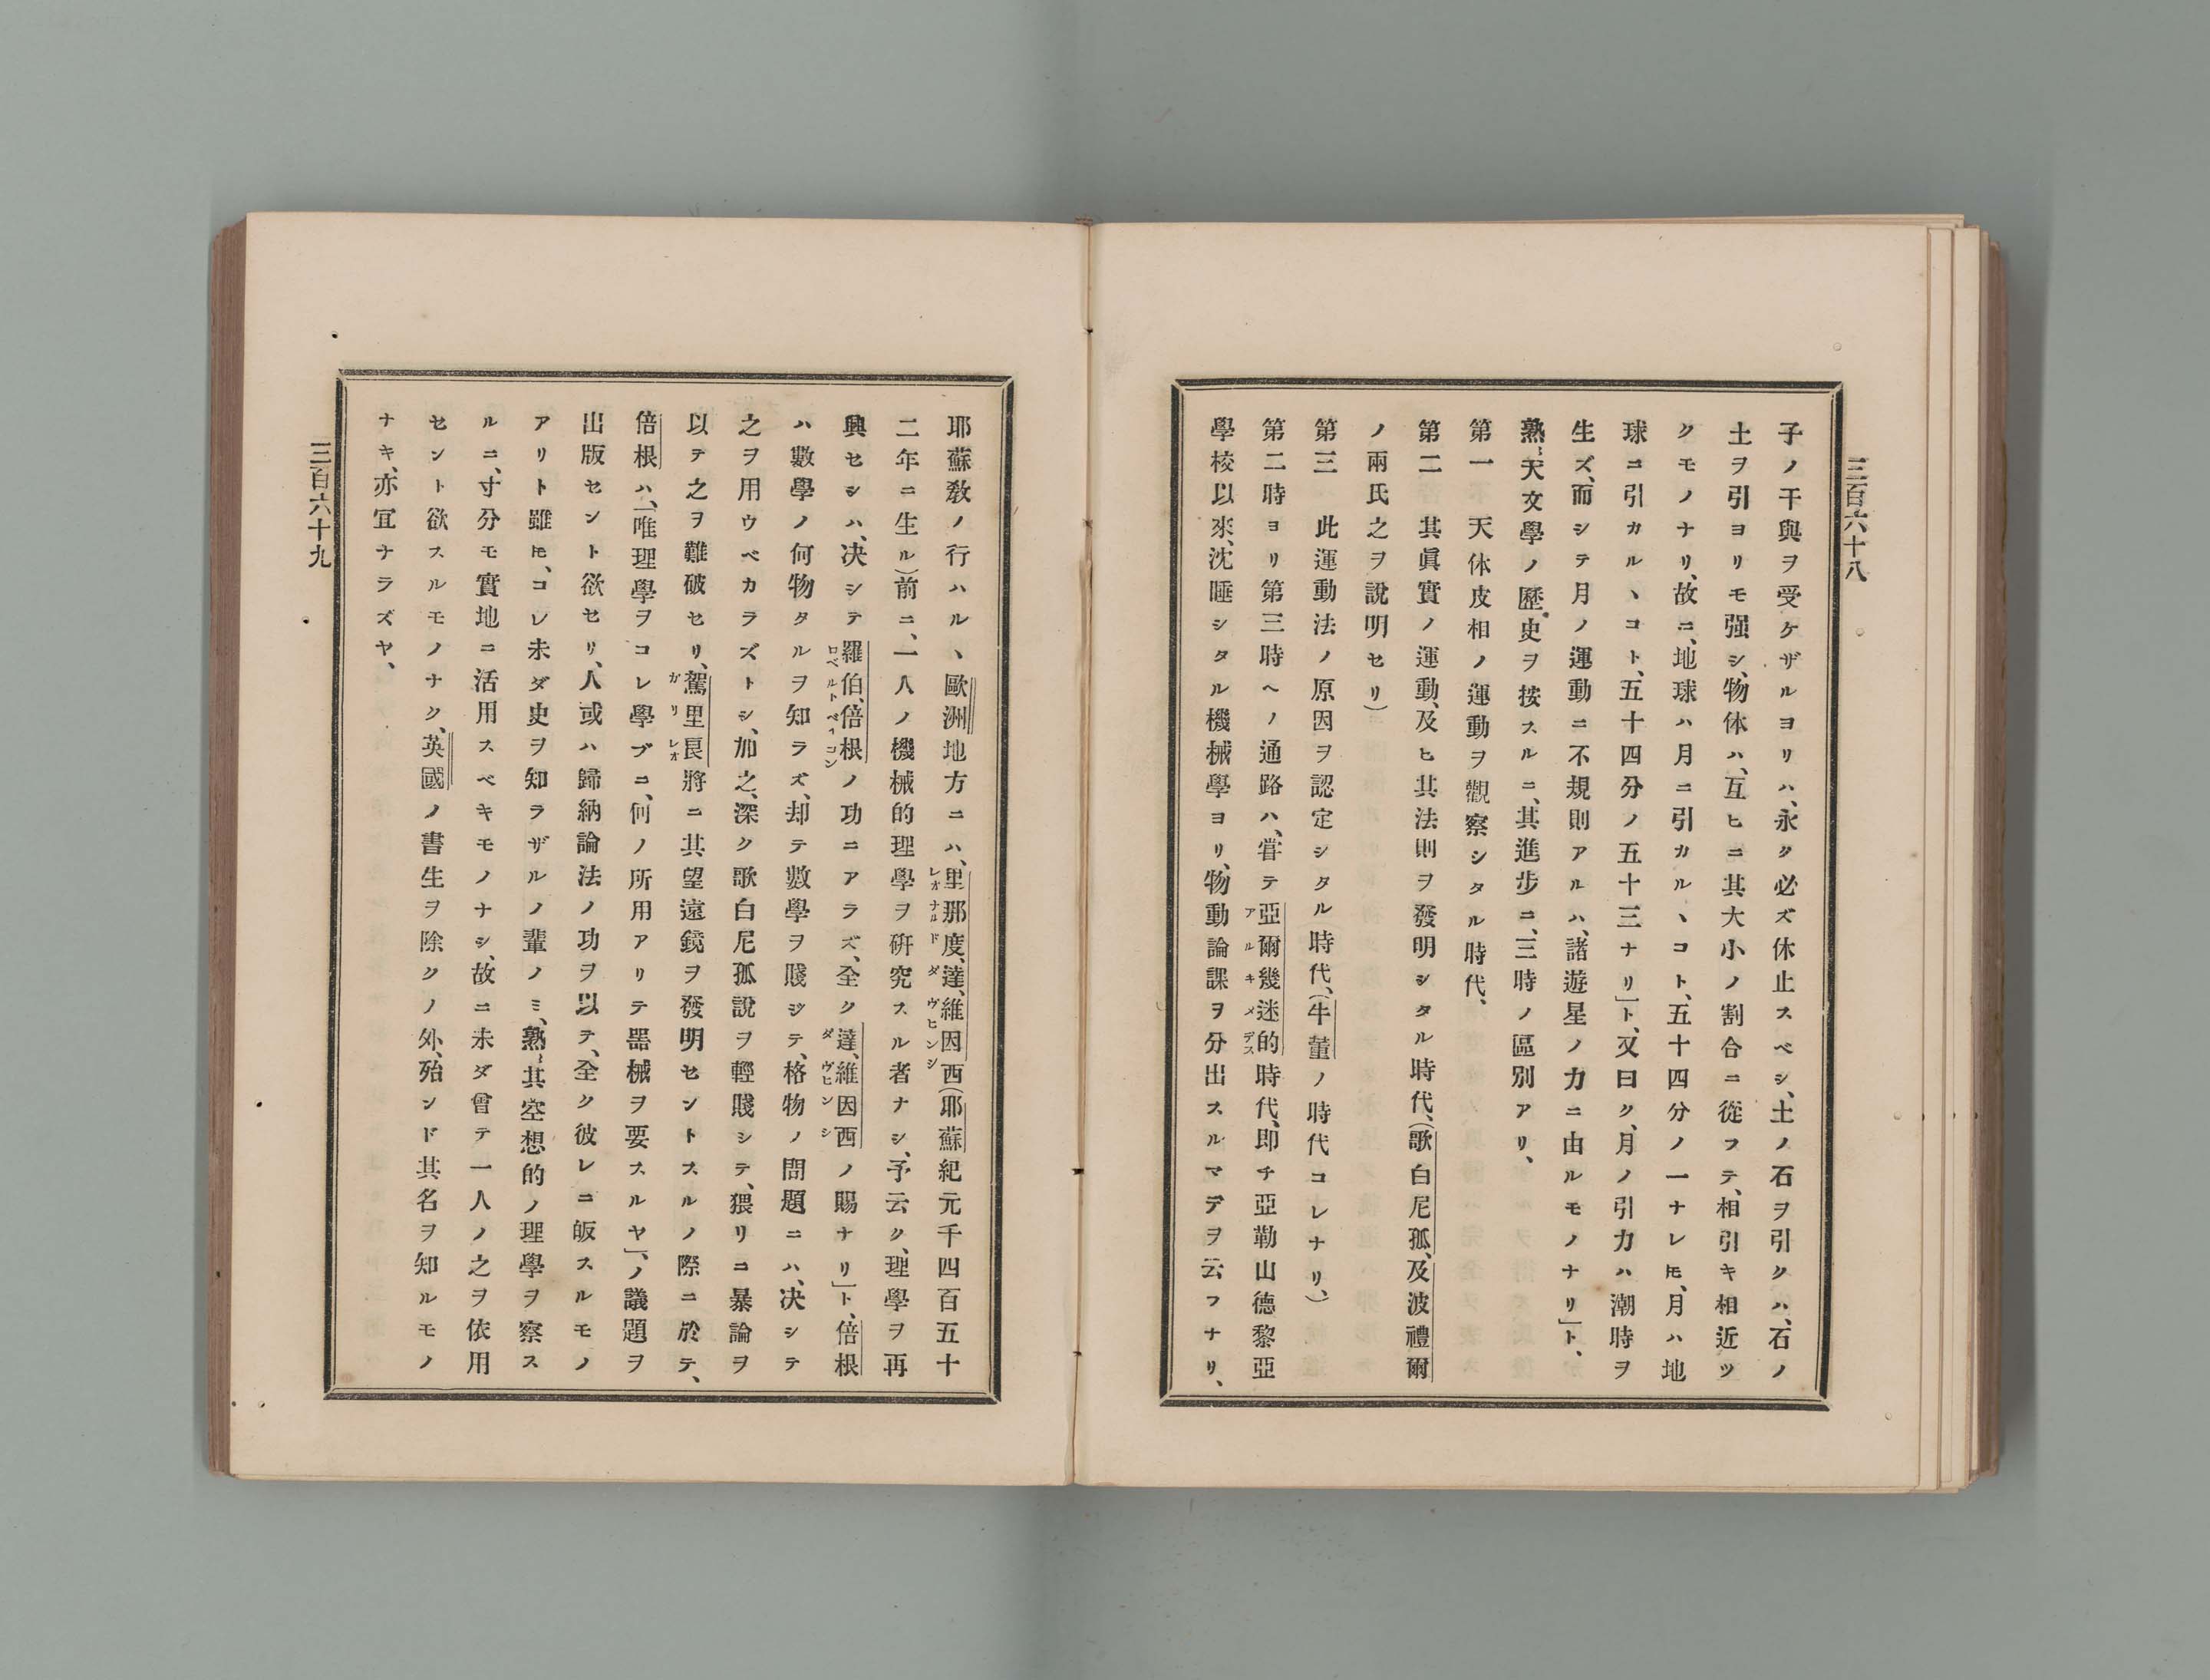 三百六十八
子ノ干與ヲ受ケザルヨリハ、永ク必ズ休止スベシ、土ノ石ヲ引クハ、石ノ
土ヲ引ヨリモ强シ、物体ハ、互ヒニ其大小ノ割合ニ從フテ、相引キ相近ツ
クモノナリ、故ニ、地球ハ月ニ引カルヽコト、五十四分ノ一ナレ𪜈、月ハ地
球ニ引カルヽコト、五十四分ノ五十三ナリ」ト、又曰ク、月ノ引力ハ潮時ヲ
生ズ、而シテ月ノ運動ニ不規則アルハ、諸遊星ノ力ニ由ルモノナリ」ト、
熟、天文學ノ歷史ヲ按スルニ、其進步ニ、三時ノ區別アリ、
第一　天体皮相ノ運動ヲ觀察シタル時代、
第二　其眞實ノ運動、及ヒ其法則ヲ發明シタル時代、(歌白尼孤、及波禮爾
ノ兩氏之ヲ說明セリ)
第三　此運動法ノ原因ヲ認定シタル時代、(牛董ノ時代コレナリ、)
第二時ヨリ第三時ヘノ通路ハ、嘗テ亞爾幾迷的時代、即チ亞勒山德黎亞
アルキメデス
學校以來、沈睡シタル機械學ヨリ、物動論課ヲ分出スルマデヲ云フナリ、
耶蘇敎ノ行ハルヽ歐洲地方ニハ、里那度、達、維因西(耶蘇紀元千四百五十
レオナルド ダ ヴヒンシ
二年ニ生ル)前ニ、一人ノ機械的理學ヲ硏究スル者ナシ、予云ク、理學ヲ再
興セシハ、决シテ羅伯、倍根ノ功ニアラズ、全ク達、維因西ノ賜ナリ」ト、倍根
ロベルト ベイコン ダ ヴヒンシ
ハ數學ノ何物タルヲ知ラズ、却テ數學ヲ賤ジテ、格物ノ問題ニハ、决シテ
之ヲ用ウベカラズトシ、加之、深ク歌白尼孤說ヲ輕賤シテ、猥リニ暴論ヲ
以テ之ヲ難破セリ、駕里良將ニ其望遠鏡ヲ發明セントスルノ際ニ於テ、
ガリレオ
倍根ハ、「唯理學ヲコレ學ブニ、何ノ所用アリテ器械ヲ要スルヤ」、ノ議題ヲ
出版セント欲セリ、人或ハ歸納論法ノ功ヲ以テ、全ク彼レニ皈スルモノ
アリト雖𪜈、コレ未ダ史ヲ知ラザルノ輩ノミ、熟、其空想的ノ理學ヲ察ス
ルニ、寸分モ實地ニ活用スベキモノナシ、故ニ未ダ曾テ一人ノ之ヲ依用
セント欲スルモノナク、英國ノ書生ヲ除クノ外、殆ンド其名ヲ知ルモノ
ナキ、亦宜ナラズヤ、
三百六十九